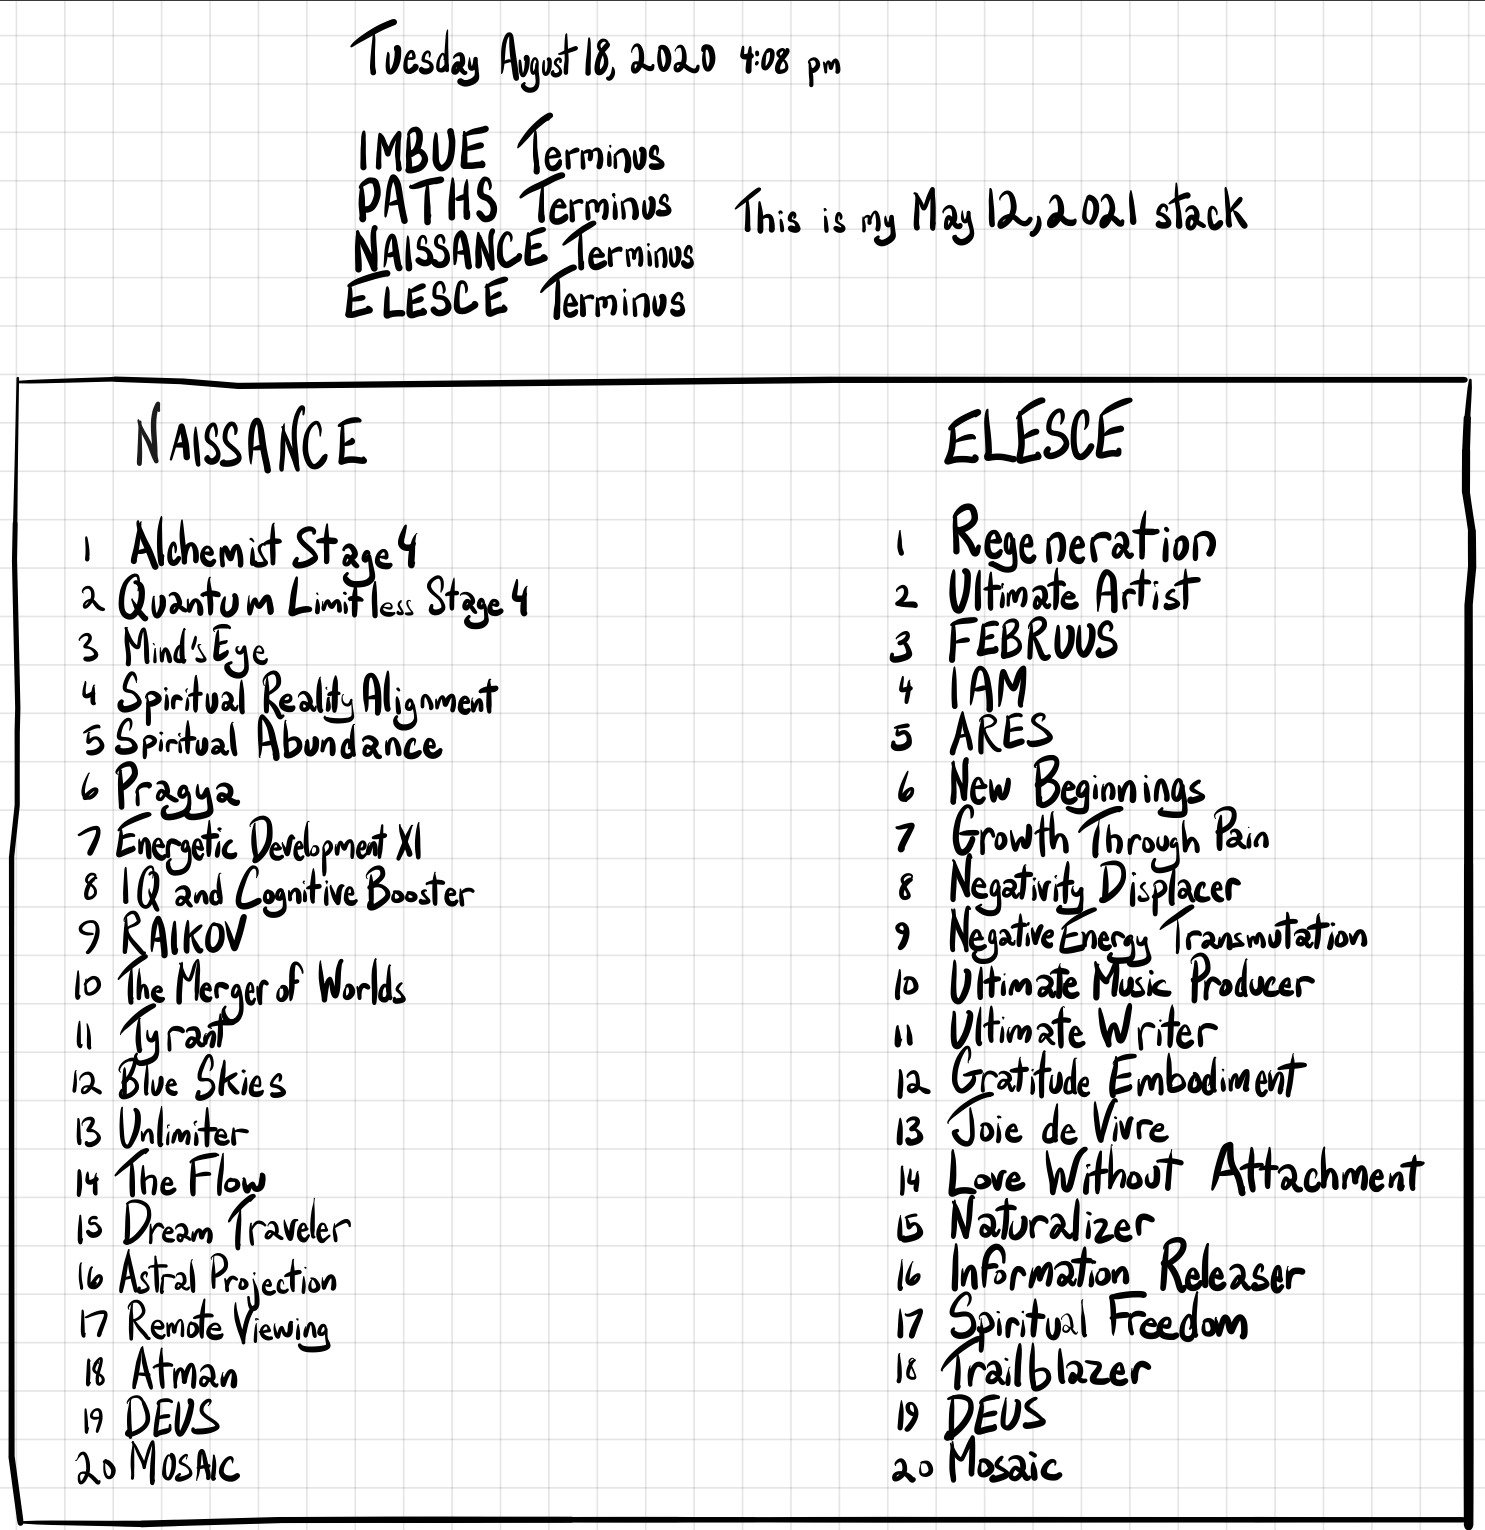 Tuesday August 18, 2020 4:08 pm
IMBUE Terminus
PATHS Terminus
This is my May 12, 2021 stack
NAISSANCE Terminus
ELESCE Terminus
NAISSANCE
1 Alchemist Stage 4
2 Quantum Limitless Stage 4
3 Mind's Eye
4 Spiritual Reality Alignment
5 Spiritual Abundance
6 Pragya
7 Energetic Development XI
8 IQ and Cognitive Booster
9 RAIKOV
10 The Merger of Worlds
11 Tyrant
12 Blue Skies
13 Unlimiter
14 The Flow
15 Dream Traveler
16 Astral Projection
17 Remote Viewing
18 Atman
19 DEUS
20 MOSAIC
ELESCE
1 Regeneration
2 Ultimate Artist
3 FEBRUUS
4 I AM
5 ARES
6 New Beginnings
7 Growth Through Pain
8 Negativity Displacer
9 Negative Energy Transmutation
10 Ultimate Music Producer
11 Ultimate Writer
12 Gratitude Embodiment
13 Joie de Vivre
14 Love Without Attachment
15 Naturalizer
16 Information Releaser
17 Spiritual Freedom
18 Trailblazer
19 DEUS
20 Mosaic